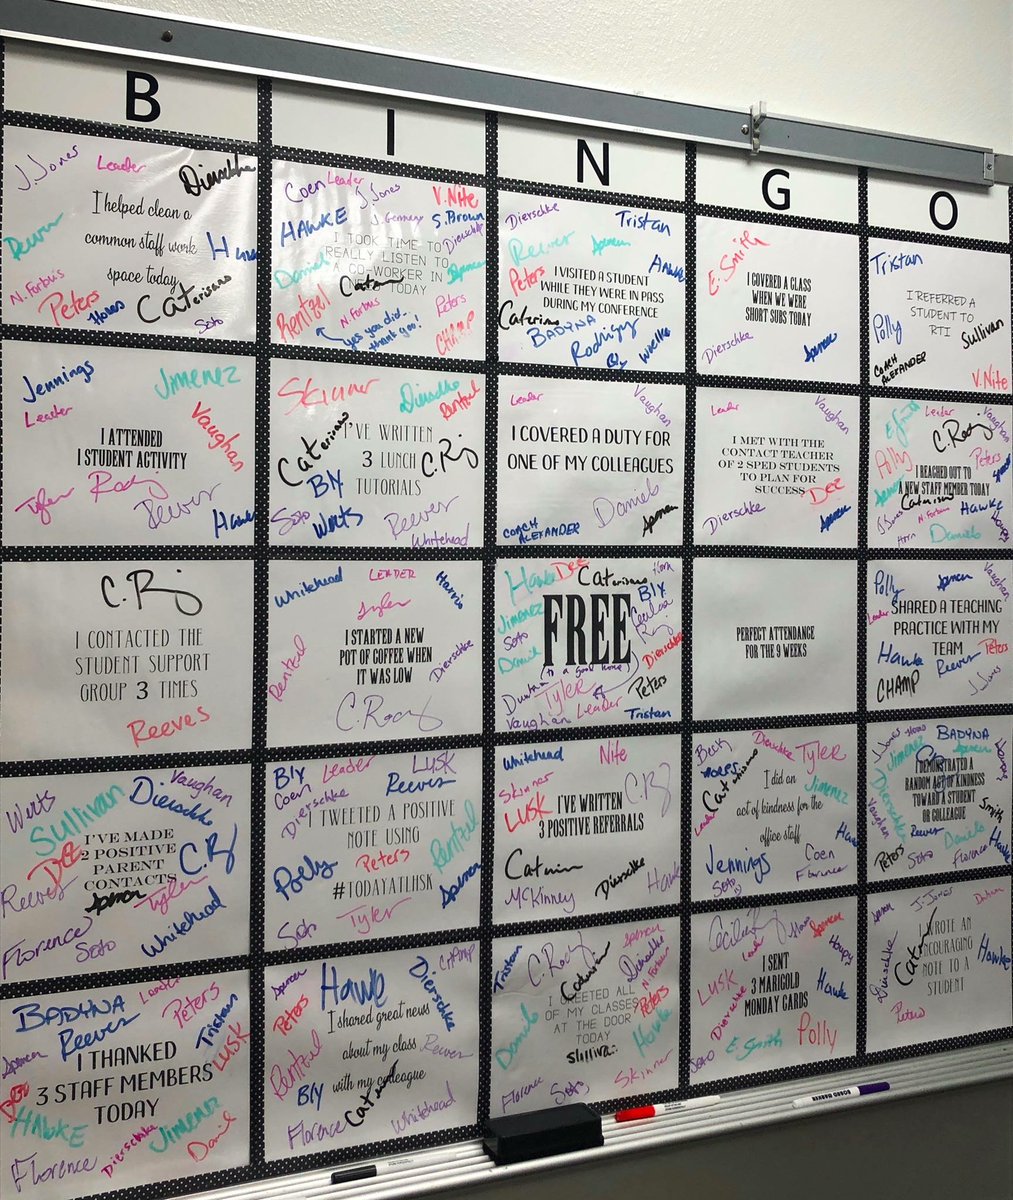 B
I
N
G
O
J. Jones
Leader
Dierschke
I helped clean a
common staff work
space today
N. Forbus
Peters
Howes
Soto
Coen
Leader
J. Jones
V. Nite
HAWKE
J. Germany
S. Brown
I TOOK TIME TO
REALLY LISTEN TO
A CO-WORKER IN
TODAY
Dierschke
Spencer
Rentzel
N. Forbus
Peters
CHAMP
yes you did.
thank you!
Dierschke
Tristan
Reever
Spencer
Peters
Hawke
I VISITED A STUDENT
WHILE THEY WERE IN PASS
DURING MY CONFERENCE
BADYNA
Rodriguez
E. Smith
I COVERED A CLASS
WHEN WE WERE
SHORT SUBS TODAY
Dierschke
Spencer
Tristan
I REFERRED A
STUDENT TO
RTI
Polly
Sullivan
COACH
ALEXANDER
V. Nite
Jennings
Jimenez
Leader
Vaughan
I ATTENDED
1 STUDENT ACTIVITY
Tyler
Reever
Hawke
Skinner
Dierschke
Rentzel
I'VE WRITTEN
3 LUNCH
TUTORIALS
Bly
Soto
Werts
Reever
Whitehead
Leader
Vaughan
I COVERED A DUTY FOR
ONE OF MY COLLEAGUES
COACH
ALEXANDER
Daniels
Spencer
Leader
Vaughan
I MET WITH THE
CONTACT TEACHER
OF 2 SPED STUDENTS
TO PLAN FOR
SUCCESS
DEE
Dierschke
Spencer
E. Smith
Leader
Vaughan
C. Rodriguez
Polly
Peters
I REACHED OUT TO
A NEW STAFF MEMBER TODAY
Spencer
J. Jones
N. Forbus
Hawke
Horn
Daniels
I CONTACTED THE
STUDENT SUPPORT
GROUP 3 TIMES
Reeves
Whitehead
LEADER
Harris
Tyler
I STARTED A NEW
POT OF COFFEE WHEN
IT WAS LOW
Rentzel
Dierschke
Hawke
Dee
Horn
Jimenez
Bly
Soto
FREE
(to a good home)
Dierschke
Tyler
Peters
Vaughan
Leader
Tristan
PERFECT ATTENDANCE
FOR THE 9 WEEKS
Polly
Spencer
Vaughan
Leader
SHARED A TEACHING
PRACTICE WITH MY
TEAM
Hawke
Reever
Peters
CHAMP
J. Jones
Werts
Vaughan
Sullivan
Dierschke
DEE
I'VE MADE
2 POSITIVE
PARENT
CONTACTS
Reever
Spencer
Tyler
Florence
Soto
Whitehead
Bly
Leader
Lusk
Coen
Reever
Dierschke
I TWEETED A POSITIVE
NOTE USING
#TODAYATLHSK
Polly
Peters
Rentzel
Spencer
Soto
Tyler
Whitehead
Nite
Skinner
LUSK
I'VE WRITTEN
3 POSITIVE REFERRALS
McKinney
Dierschke
Hawke
Becky
Dierschke
Tyler
I did an
act of kindness for the
office staff
Jimenez
Leader
Jennings
Soto
Coen
Florence
J. Jones
BADYNA
Jimenez
Spencer
I DEMONSTRATED A
RANDOM ACT OF KINDNESS
TOWARD A STUDENT
OR COLLEAGUE
Dierschke
Vaughan
Smith
Reever
Daniels
Peters
Soto
Florence
Hawke
BADYNA
Leader
Peters
Reever
Tristan
Spencer
LUSK
I THANKED
3 STAFF MEMBERS
TODAY
DEE
HAWKE
Jimenez
Florence
Dierschke
Daniel
Spencer
Hawke
CHAMP
Dierschke
Peters
I shared great news
about my class
with my colleague
Rentzel
Reever
Bly
Florence
Whitehead
Tristan
C. Rodriguez
Spencer
Dierschke
N. Forbus
I GREETED ALL
OF MY CLASSES
AT THE DOOR
TODAY
Peters
Daniels
Sullivan
Hawke
Florence
Soto
Skinner
Leader
Spencer
I SENT
3 MARIGOLD
MONDAY CARDS
Lusk
Hawke
Dierschke
Soto
E. Smith
Polly
Spencer
J. Jones
I WROTE AN
ENCOURAGING
NOTE TO A
STUDENT
Dierschke
Hawke
Peters
BOARD MARKER